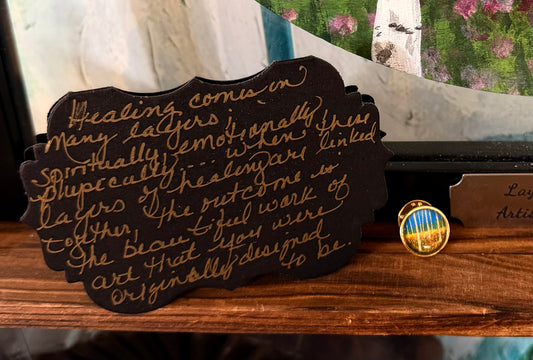 Healing comes in
many layers;
spiritually, emotionally
physically... when these
layers of healing are linked
together, the outcome is:
the beautiful work of
art that you were
originally designed
to be.
Lay
Artis